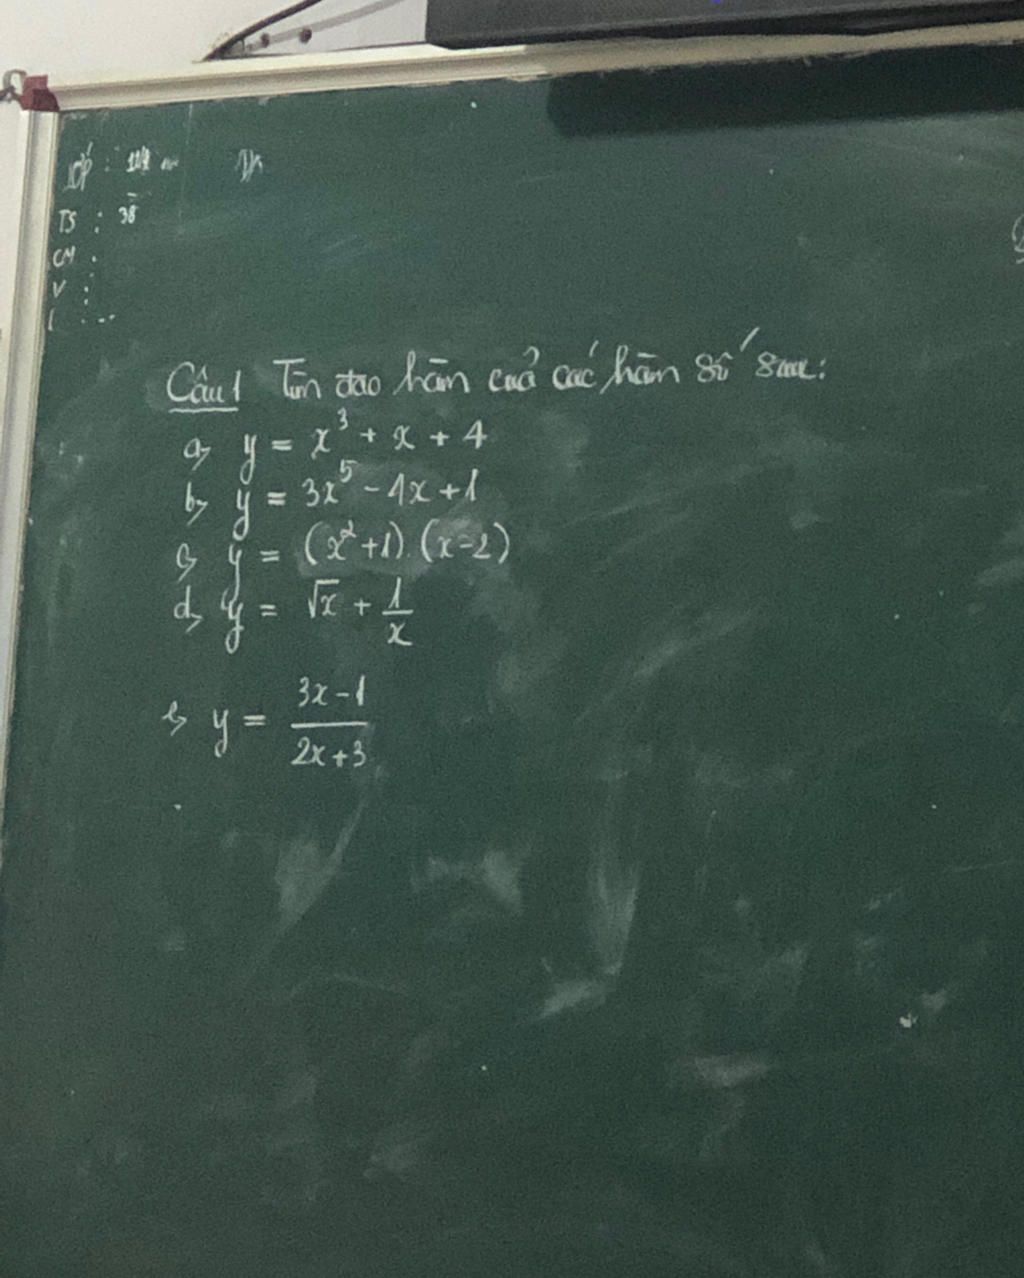 Lớp :
TS : 38
CM :
V :
Câu 1 Tìm đạo hàm của các hàm số sau:
a, y = x³ + x + 4
b, y = 3x⁵ - 4x + 1
c, y = (x² + 1).(x - 2)
d, y = √x + 1/x
e, y = (3x - 1)/(2x + 3)